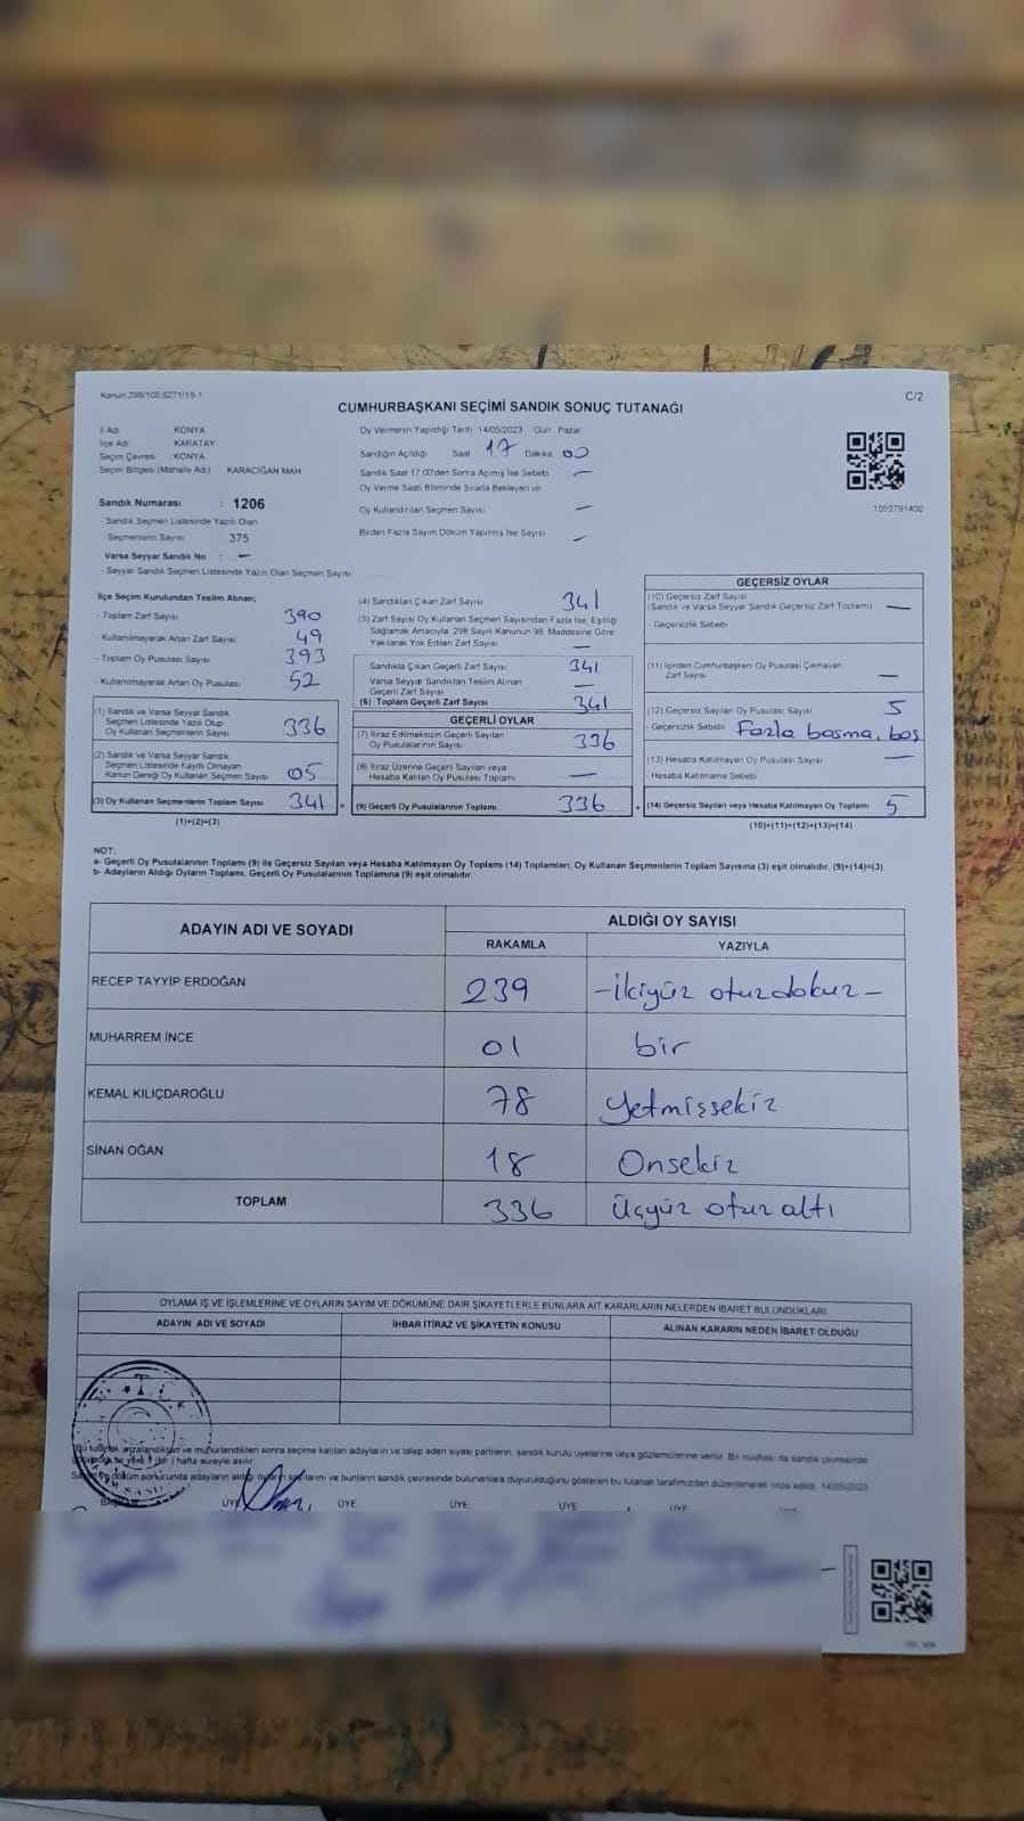 Kanun:298/105,6271/19-1
C/2
CUMHURBAŞKANI SEÇİMİ SANDIK SONUÇ TUTANAĞI
İl Adı: KONYA
İlçe Adı: KARATAY
Seçim Çevresi :KONYA
Seçim Bölgesi (Mahalle Adı): KARACİĞAN MAH
Sandık Numarası : 1206
- Sandık Seçmen Listesinde Yazılı Olan
Seçmenlerin Sayısı: 375
Varsa Seyyar Sandık No : —
- Seyyar Sandık Seçmen Listesinde Yazılı Olan Seçmen Sayısı
Oy Vermenin Yapıldığı Tarih: 14/05/2023 Gün: Pazar
Sandığın Açıldığı: Saat 17 Dakika 00
Sandık Saat 17:00'den Sonra Açılmış İse Sebebi: —
Oy Verme Saati Bitiminde Sırada Bekleyen ve
Oy Kullandırılan Seçmen Sayısı: —
Birden Fazla Sayım Döküm Yapılmış İse Sayısı: —
1050791400
İlçe Seçim Kurulundan Teslim Alınan;
- Toplam Zarf Sayısı: 390
- Kullanılmayarak Artan Zarf Sayısı: 49
- Toplam Oy Pusulası Sayısı: 393
- Kullanılmayarak Artan Oy Pusulası: 52
(1) Sandık ve Varsa Seyyar Sandık
Seçmen Listesinde Yazılı Olup
Oy Kullanan Seçmenlerin Sayısı: 336
(2) Sandık ve Varsa Seyyar Sandık
Seçmen Listesinde Kayıtlı Olmayan
Kanun Gereği Oy Kullanan Seçmen Sayısı: 05
(3) Oy Kullanan Seçmenlerin Toplam Sayısı: 341
(1)+(2)=(3)
(4) Sandıktan Çıkan Zarf Sayısı: 341
(5) Zarf Sayısı Oy Kullanan Seçmen Sayısından Fazla İse, Eşitliği
Sağlamak Amacıyla, 298 Sayılı Kanunun 98. Maddesine Göre
Yakılarak Yok Edilen Zarf Sayısı: —
Sandıkta Çıkan Geçerli Zarf Sayısı: 341
Varsa Seyyar Sandıktan Teslim Alınan
Geçerli Zarf Sayısı: —
(6) Toplam Geçerli Zarf Sayısı: 341
GEÇERLİ OYLAR
(7) İtiraz Edilmeksizin Geçerli Sayılan
Oy Pusulalarının Sayısı: 336
(8) İtiraz Üzerine Geçerli Sayılan veya
Hesaba Katılan Oy Pusulası Toplamı: —
(9) Geçerli Oy Pusulalarının Toplamı: 336
GEÇERSİZ OYLAR
(10) Geçersiz Zarf Sayısı
(Sandık ve Varsa Seyyar Sandık Geçersiz Zarf Toplamı) —
- Geçersizlik Sebebi:
(11) İçinden Cumhurbaşkanı Oy Pusulası Çıkmayan
Zarf Sayısı: —
(12) Geçersiz Sayılan Oy Pusulası Sayısı: 5
- Geçersizlik Sebebi: Fazla basma, boş
(13) Hesaba Katılmayan Oy Pusulası Sayısı: —
Hesaba Katılmama Sebebi:
(14) Geçersiz Sayılan veya Hesaba Katılmayan Oy Toplamı: 5
(10)+(11)+(12)+(13)=(14)
NOT:
a- Geçerli Oy Pusulalarının Toplamı (9) ile Geçersiz Sayılan veya Hesaba Katılmayan Oy Toplamı (14) Toplamları, Oy Kullanan Seçmenlerin Toplam Sayısına (3) eşit olmalıdır. (9)+(14)=(3)
b- Adayların Aldığı Oyların Toplamı, Geçerli Oy Pusulalarının Toplamına (9) eşit olmalıdır.
ADAYIN ADI VE SOYADI
ALDIĞI OY SAYISI
RAKAMLA YAZIYLA
RECEP TAYYİP ERDOĞAN 239 -İkiyüz otuzdokuz-
MUHARREM İNCE 01 bir
KEMAL KILIÇDAROĞLU 78 yetmişsekiz
SİNAN OĞAN 18 Onsekiz
TOPLAM 336 üçyüz otuz altı
OYLAMA İŞ VE İŞLEMLERİNE VE OYLARIN SAYIM VE DÖKÜMÜNE DAİR ŞİKAYETLERLE BUNLARA AİT KARARLARIN NELERDEN İBARET BULUNDUKLARI
ADAYIN ADI VE SOYADI İHBAR İTİRAZ VE ŞİKAYETİN KONUSU ALINAN KARARIN NEDEN İBARET OLDUĞU
T.C.
Bu tutanak imzalandıktan ve mühürlendikten sonra seçime katılan adayların ve talep eden siyasi partilerin, sandık kurulu üyelerine veya gözlemcilerine verilir. Bir nüshası da sandık çevresinde
hafta süreyle asılır.
Sayım ve döküm sonucunda adayların aldığı oyların sayılarını ve bunların sandık çevresinde bulunanlara duyurulduğunu gösteren bu tutanak tarafımızdan düzenlenerek imza edildi. 14/05/2023
BAŞKAN ÜYE ÜYE ÜYE ÜYE ÜYE